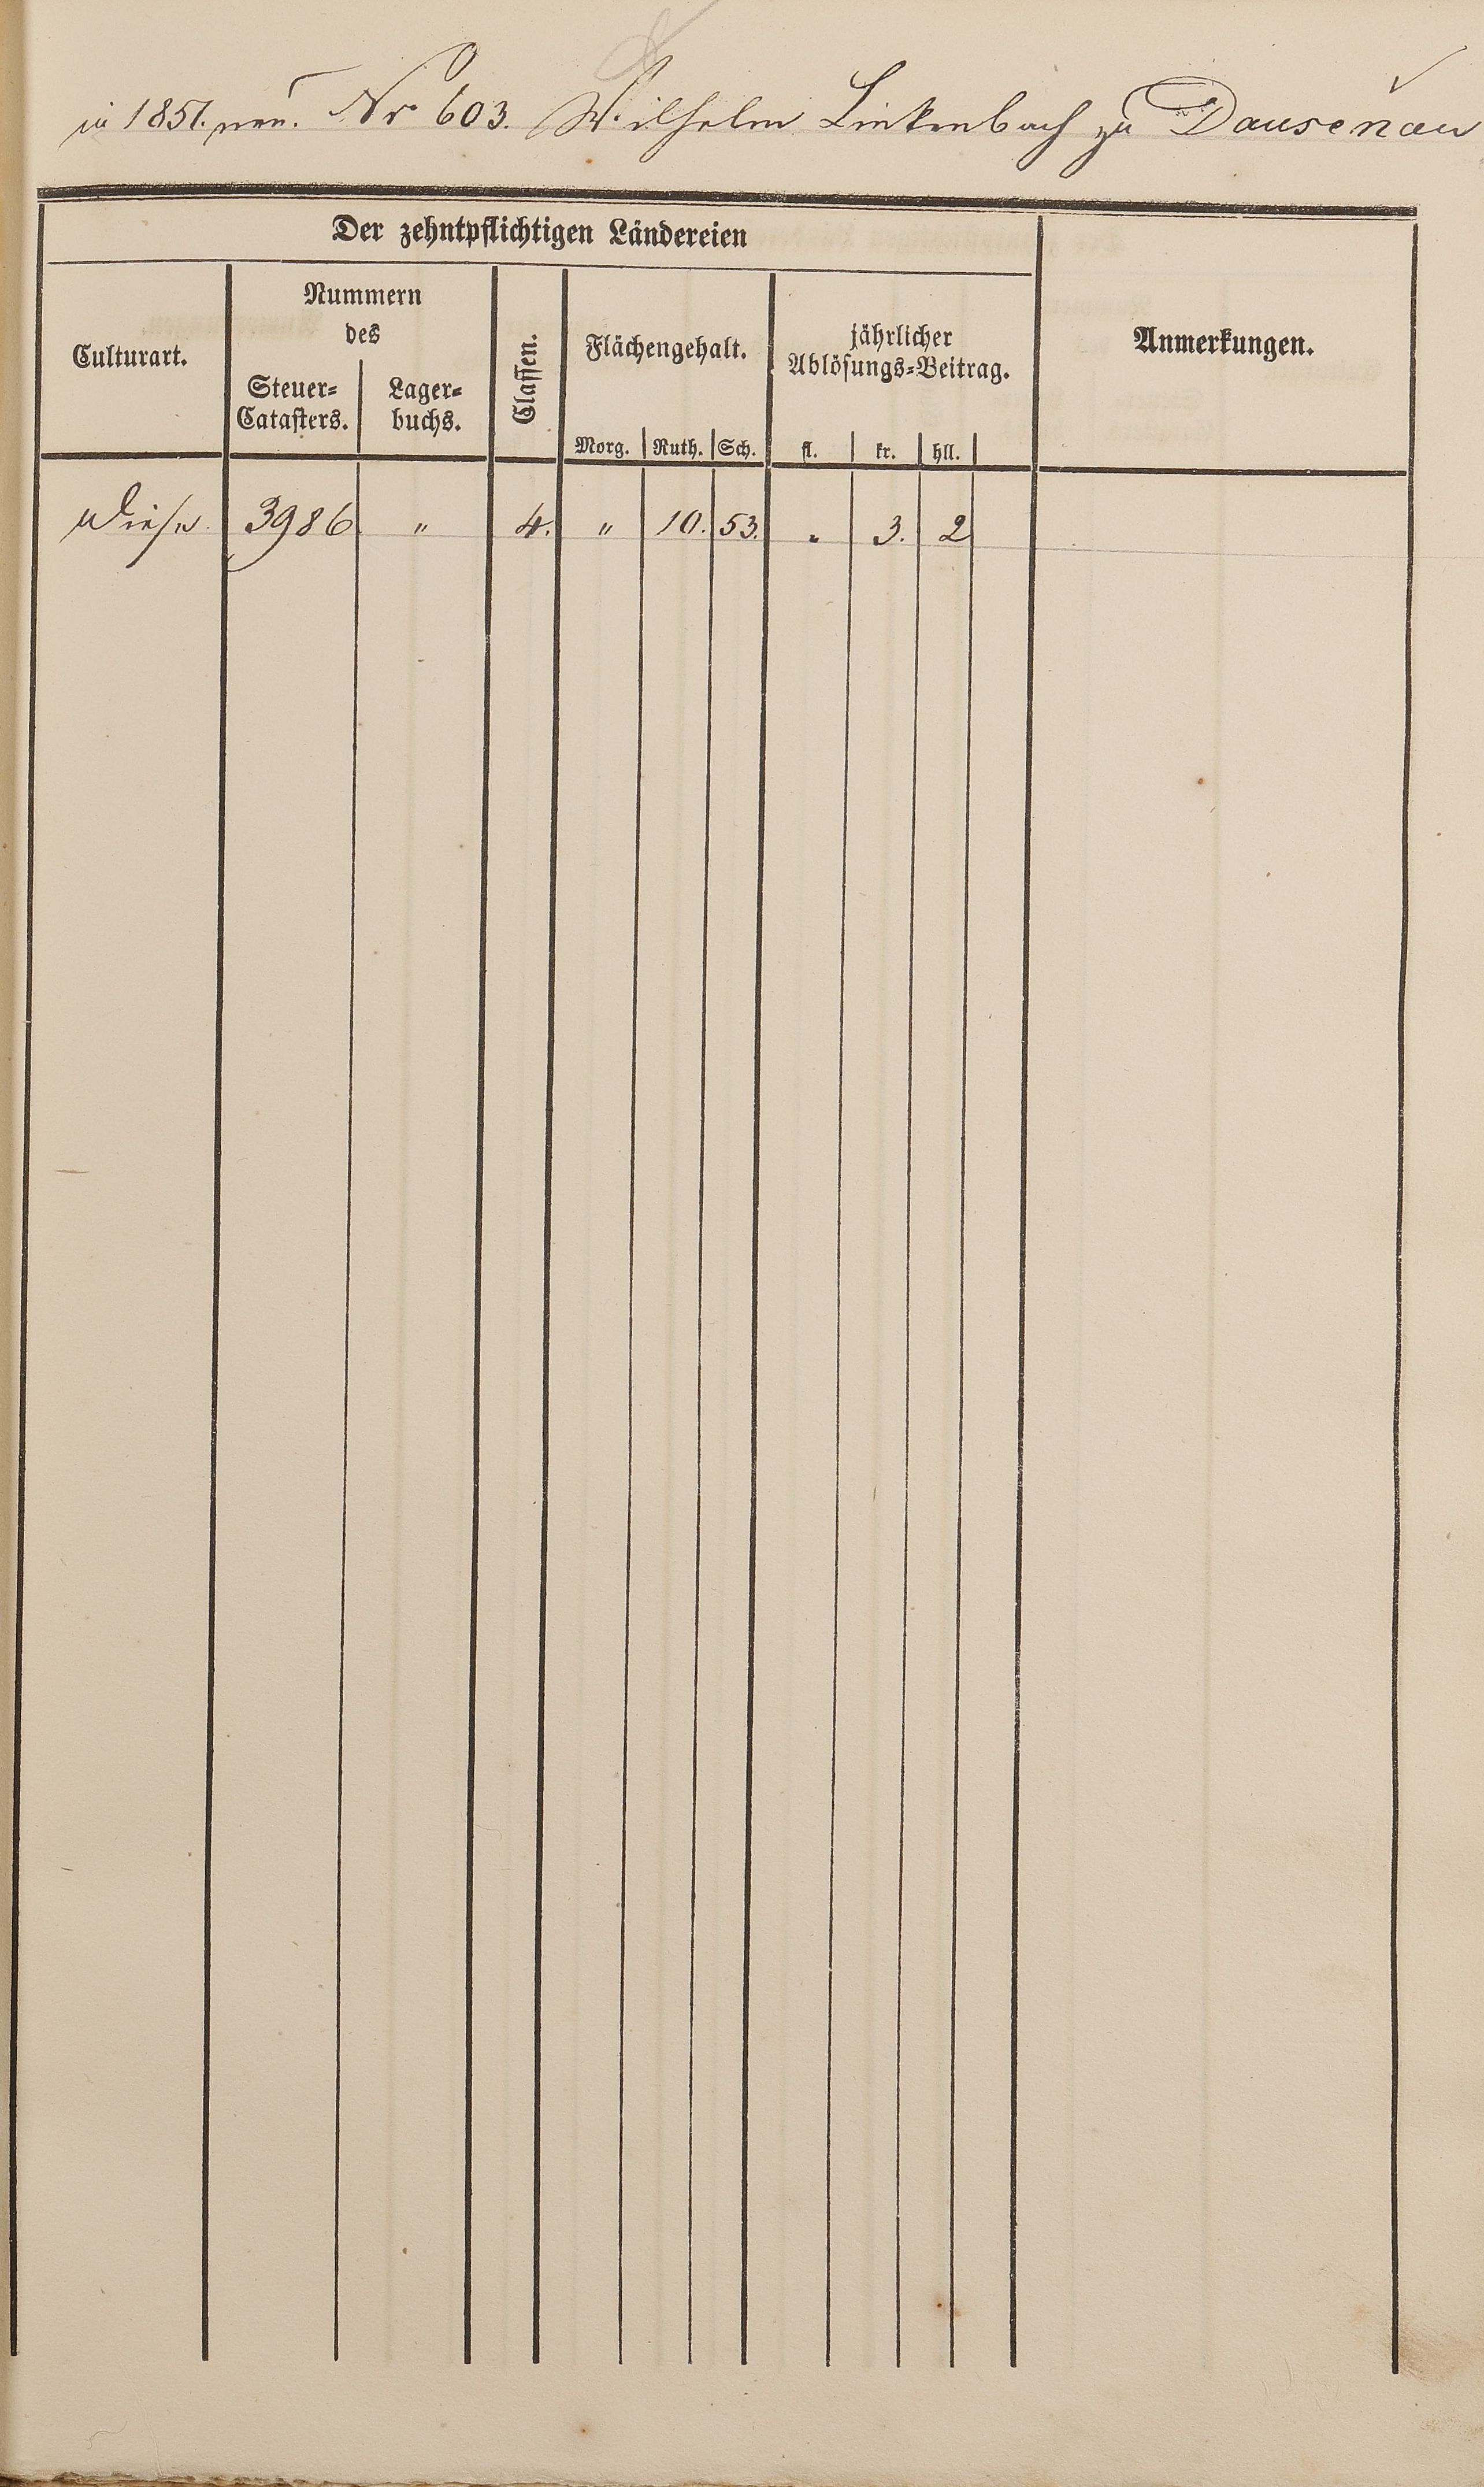 in 1851. neu. Nr 603. Wilhelm Linkenbach zu Dausenau
Der zehntpflichtigen Ländereien
Culturart.
Nummern
des
Steuer=
Catasters.
Lager=
buchs.
Classen.
Flächengehalt.
Morg. Ruth. Sch.
jährlicher
Ablösungs=Beitrag.
fl. kr. hll.
Anmerkungen.
Wiese. 3986 " 4. " 10. 53. " 3. 2